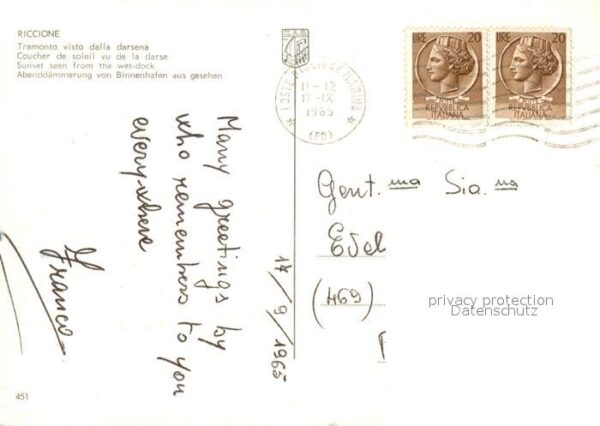 RICCIONE
Tramonto visto dalla darsena
Coucher de soleil vu de la darse
Sunset seen from the wet-dock
Abenddämmerung von Binnenhafen aus gesehen
POSTE RICCIONE MARINA
11-12
17-IX
1965
(FO)
LIRE 20
REPVBBLICA
ITALIANA
LIRE 20
REPVBBLICA
ITALIANA
Many greetings by
who remembers to you
everywhere
Franco
17/9/1965
Gent.ma Sia.na
(469)
privacy protection
Datenschutz
451